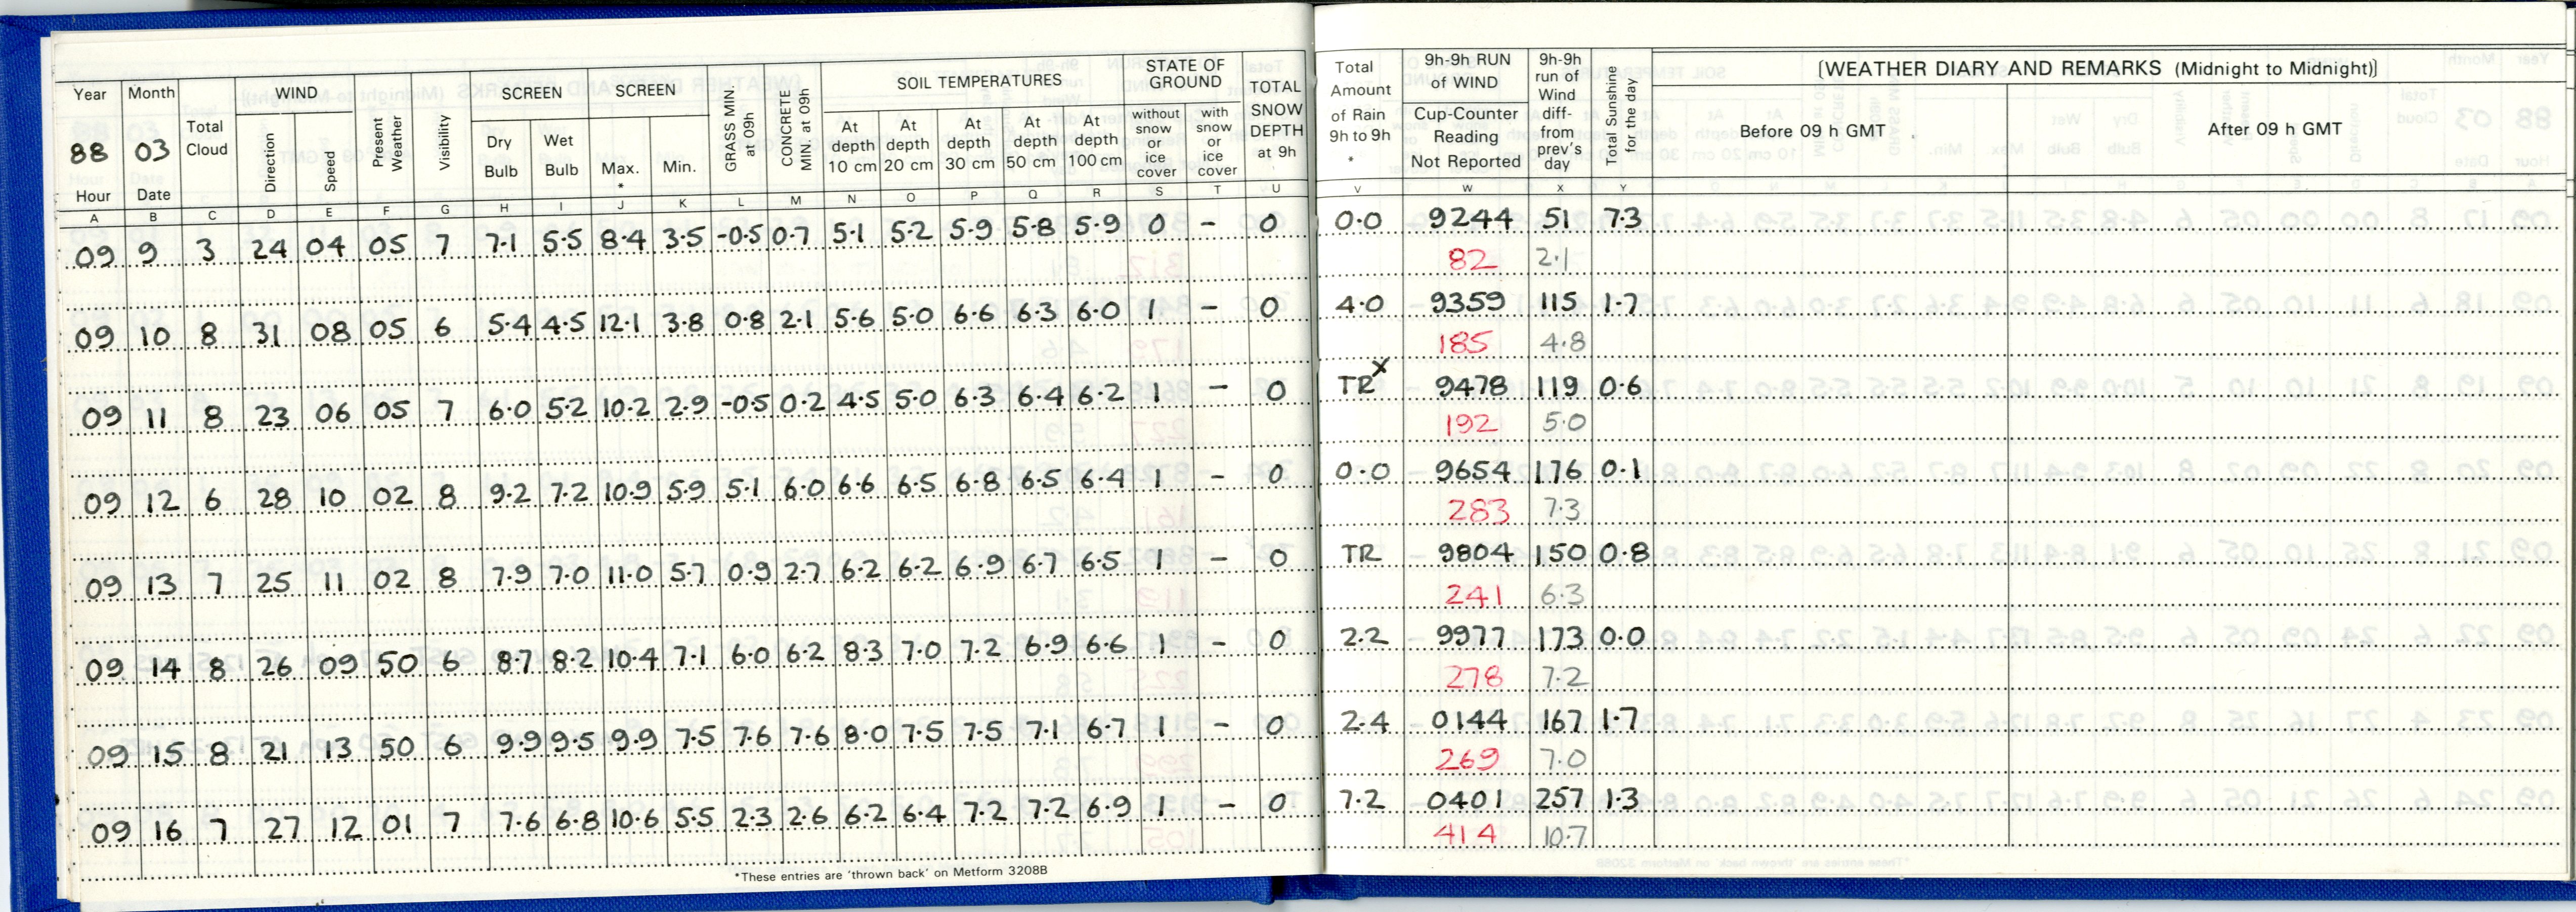 Year Month WIND SCREEN SCREEN SOIL TEMPERATURES STATE OF GROUND TOTAL SNOW DEPTH at 9h
88 03 Total Cloud Direction Speed Present Weather Visibility Dry Bulb Wet Bulb Max. * Min. GRASS MIN. at 09h CONCRETE MIN. at 09h At depth 10 cm At depth 20 cm At depth 30 cm At depth 50 cm At depth 100 cm without snow or ice cover with snow or ice cover
Hour Date
A B C D E F G H I J K L M N O P Q R S T U
09 9 3 24 04 05 7 7·1 5·5 8·4 3·5 -0·5 0·7 5·1 5·2 5·9 5·8 5·9 0 - 0
09 10 8 31 08 05 6 5·4 4·5 12·1 3·8 0·8 2·1 5·6 5·0 6·6 6·3 6·0 1 - 0
09 11 8 23 06 05 7 6·0 5·2 10·2 2·9 -0·5 0·2 4·5 5·0 6·3 6·4 6·2 1 - 0
09 12 6 28 10 02 8 9·2 7·2 10·9 5·9 5·1 6·0 6·6 6·5 6·8 6·5 6·4 1 - 0
09 13 7 25 11 02 8 7·9 7·0 11·0 5·7 0·9 2·7 6·2 6·2 6·9 6·7 6·5 1 - 0
09 14 8 26 09 50 6 8·7 8·2 10·4 7·1 6·0 6·2 8·3 7·0 7·2 6·9 6·6 1 - 0
09 15 8 21 13 50 6 9·9 9·5 9·9 7·5 7·6 7·6 8·0 7·5 7·5 7·1 6·7 1 - 0
09 16 7 27 12 01 7 7·6 6·8 10·6 5·5 2·3 2·6 6·2 6·4 7·2 7·2 6·9 1 - 0
*These entries are 'thrown back' on Metform 3208B
Total Amount of Rain 9h to 9h * 9h-9h RUN of WIND 9h-9h run of Wind diff- from prev's day Total Sunshine for the day [WEATHER DIARY AND REMARKS (Midnight to Midnight)]
Cup-Counter Reading Not Reported Before 09 h GMT After 09 h GMT
V W X Y
0·0 9244 51 7·3
82 2·1
4·0 9359 115 1·7
185 4·8
TR x 9478 119 0·6
192 5·0
0·0 9654 176 0·1
283 7·3
TR 9804 150 0·8
241 6·3
2·2 9977 173 0·0
278 7·2
2·4 0144 167 1·7
269 7·0
7·2 0401 257 1·3
414 10·7